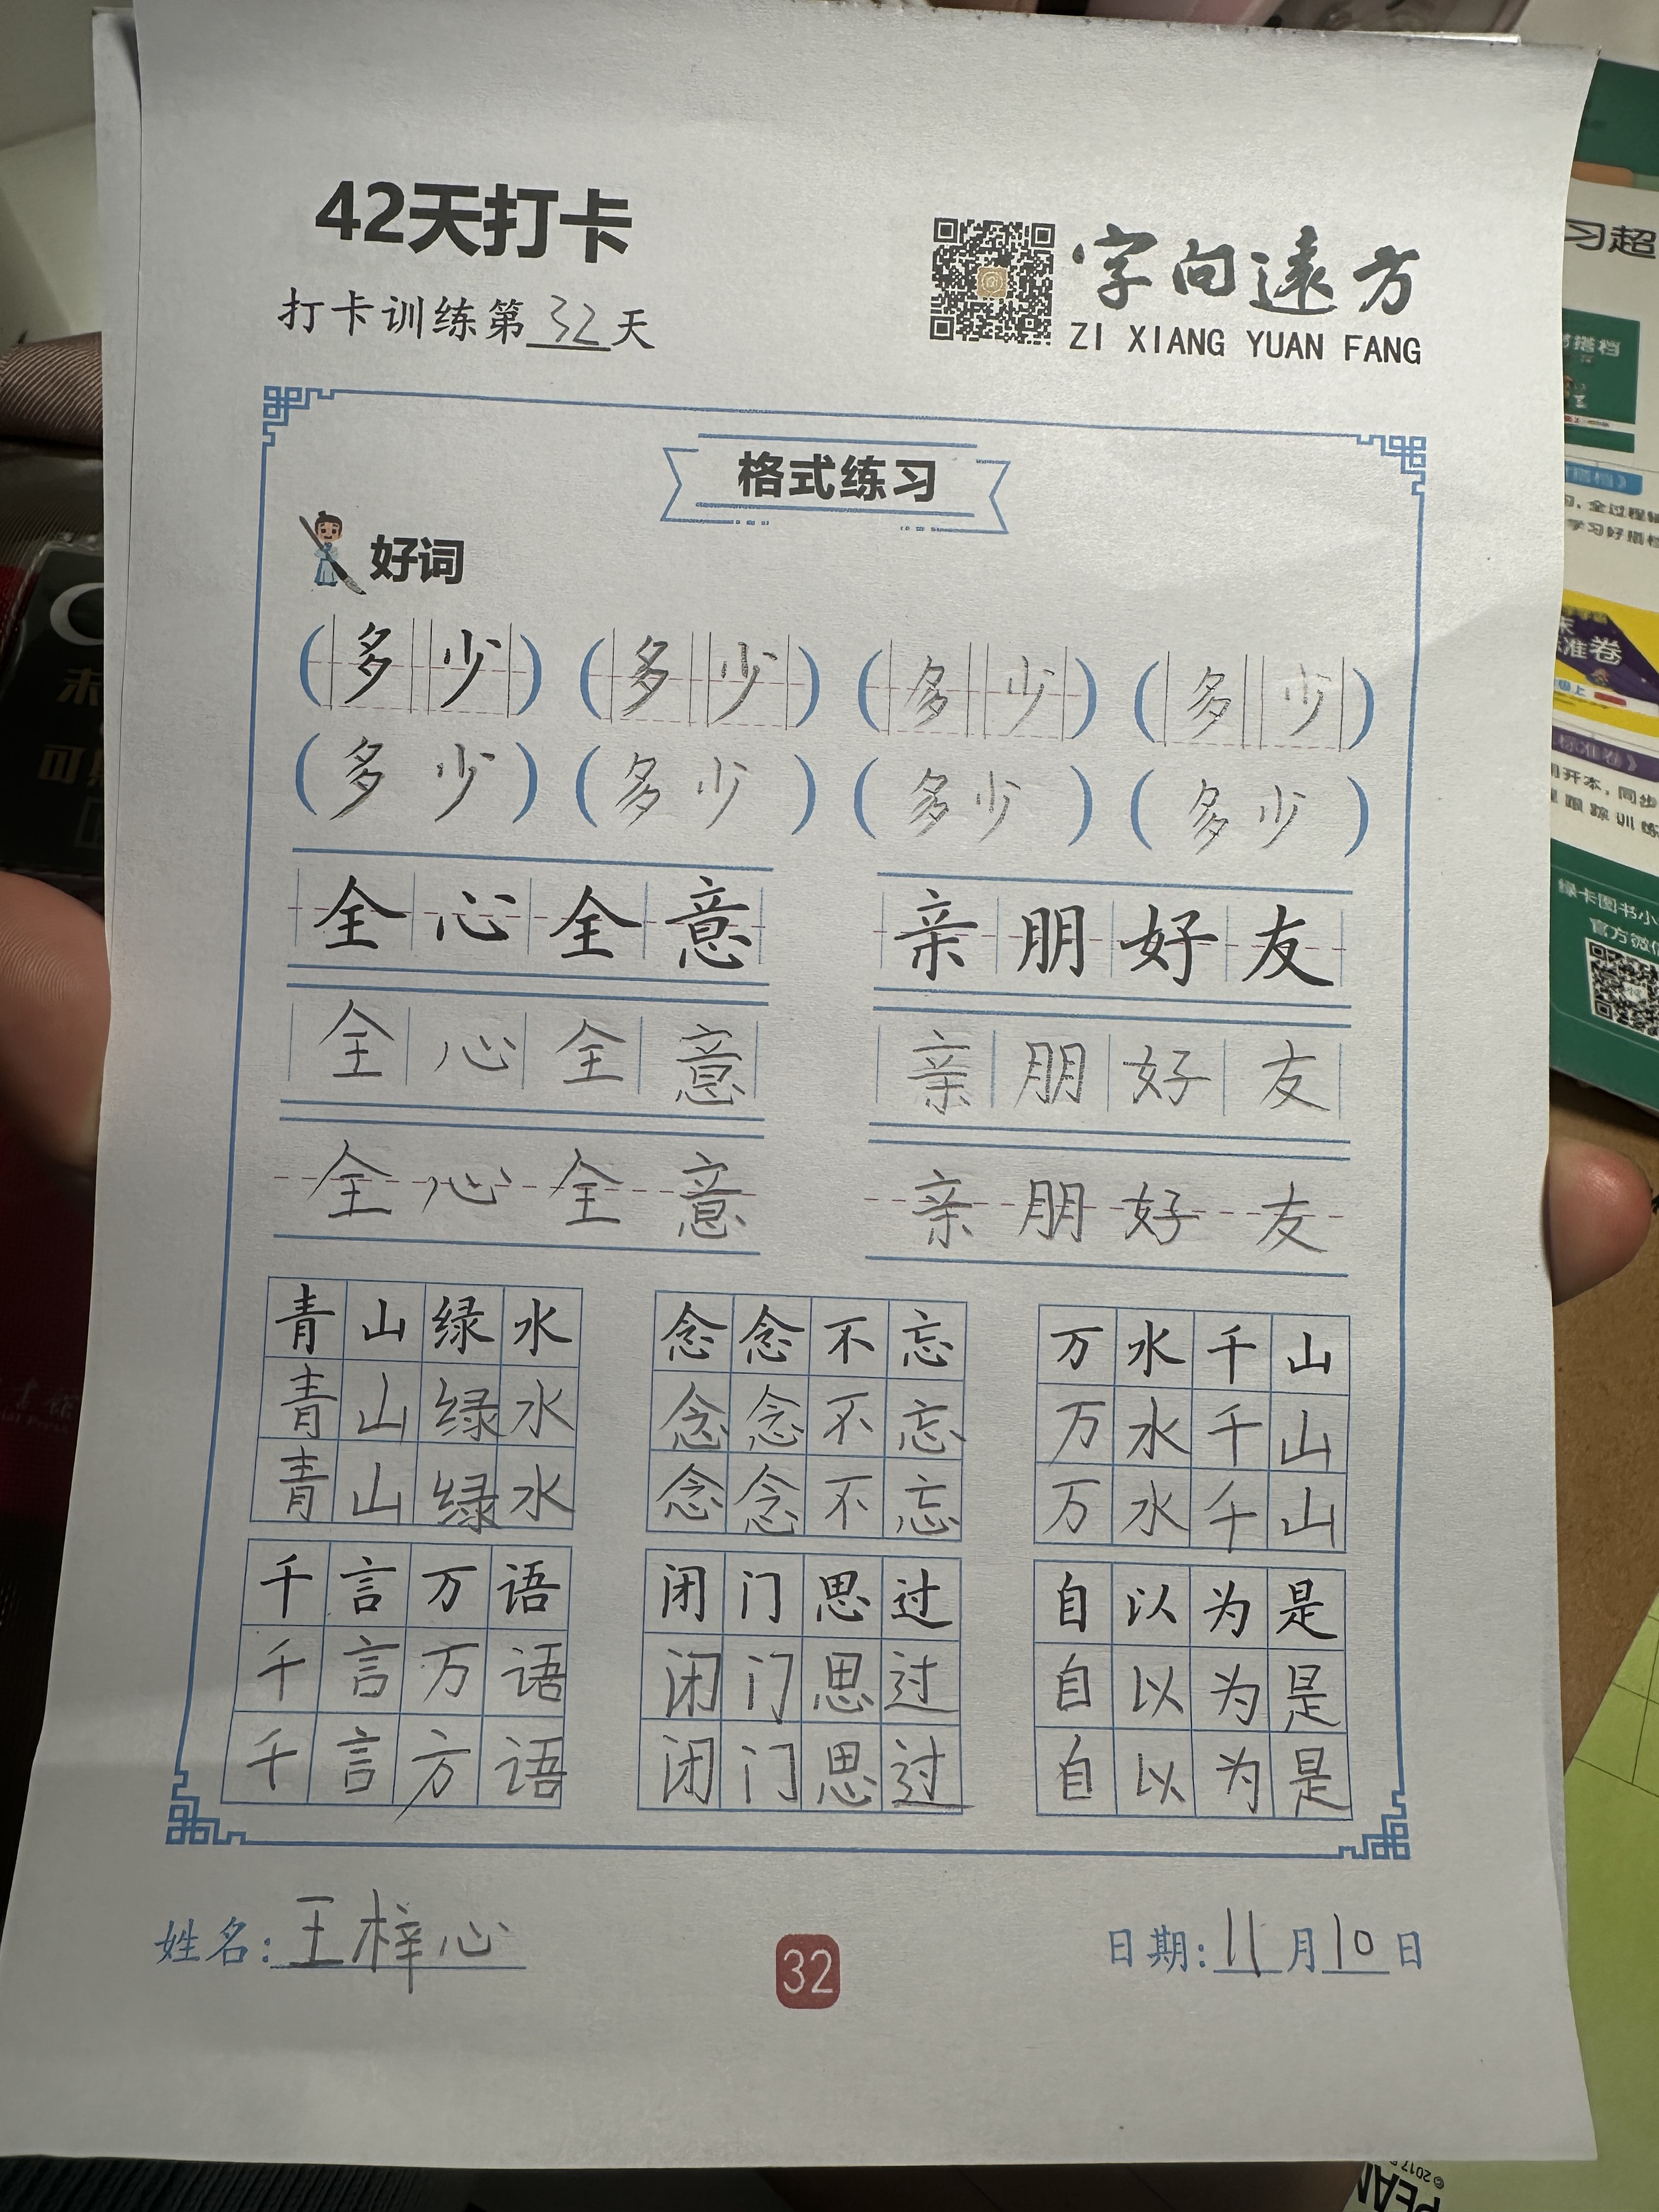 42天打卡
打卡训练第32天
字向遠方
ZI XIANG YUAN FANG
格式练习
好词
(多少) (多少) (多少) (多少)
(多少) (多少) (多少) (多少)
全心全意 亲朋好友
全心全意 亲朋好友
全心全意 亲朋好友
青山绿水 念念不忘 万水千山
青山绿水 念念不忘 万水千山
青山绿水 念念不忘 万水千山
千言万语 闭门思过 自以为是
千言万语 闭门思过 自以为是
千言方语 闭门思过 自以为是
姓名:王梓心
32
日期:11月10日
习超
搭档
全过程
学习好
准卷
开本,同步
跟踪训练
绿卡图书小
官方微信
PEAN
©2017